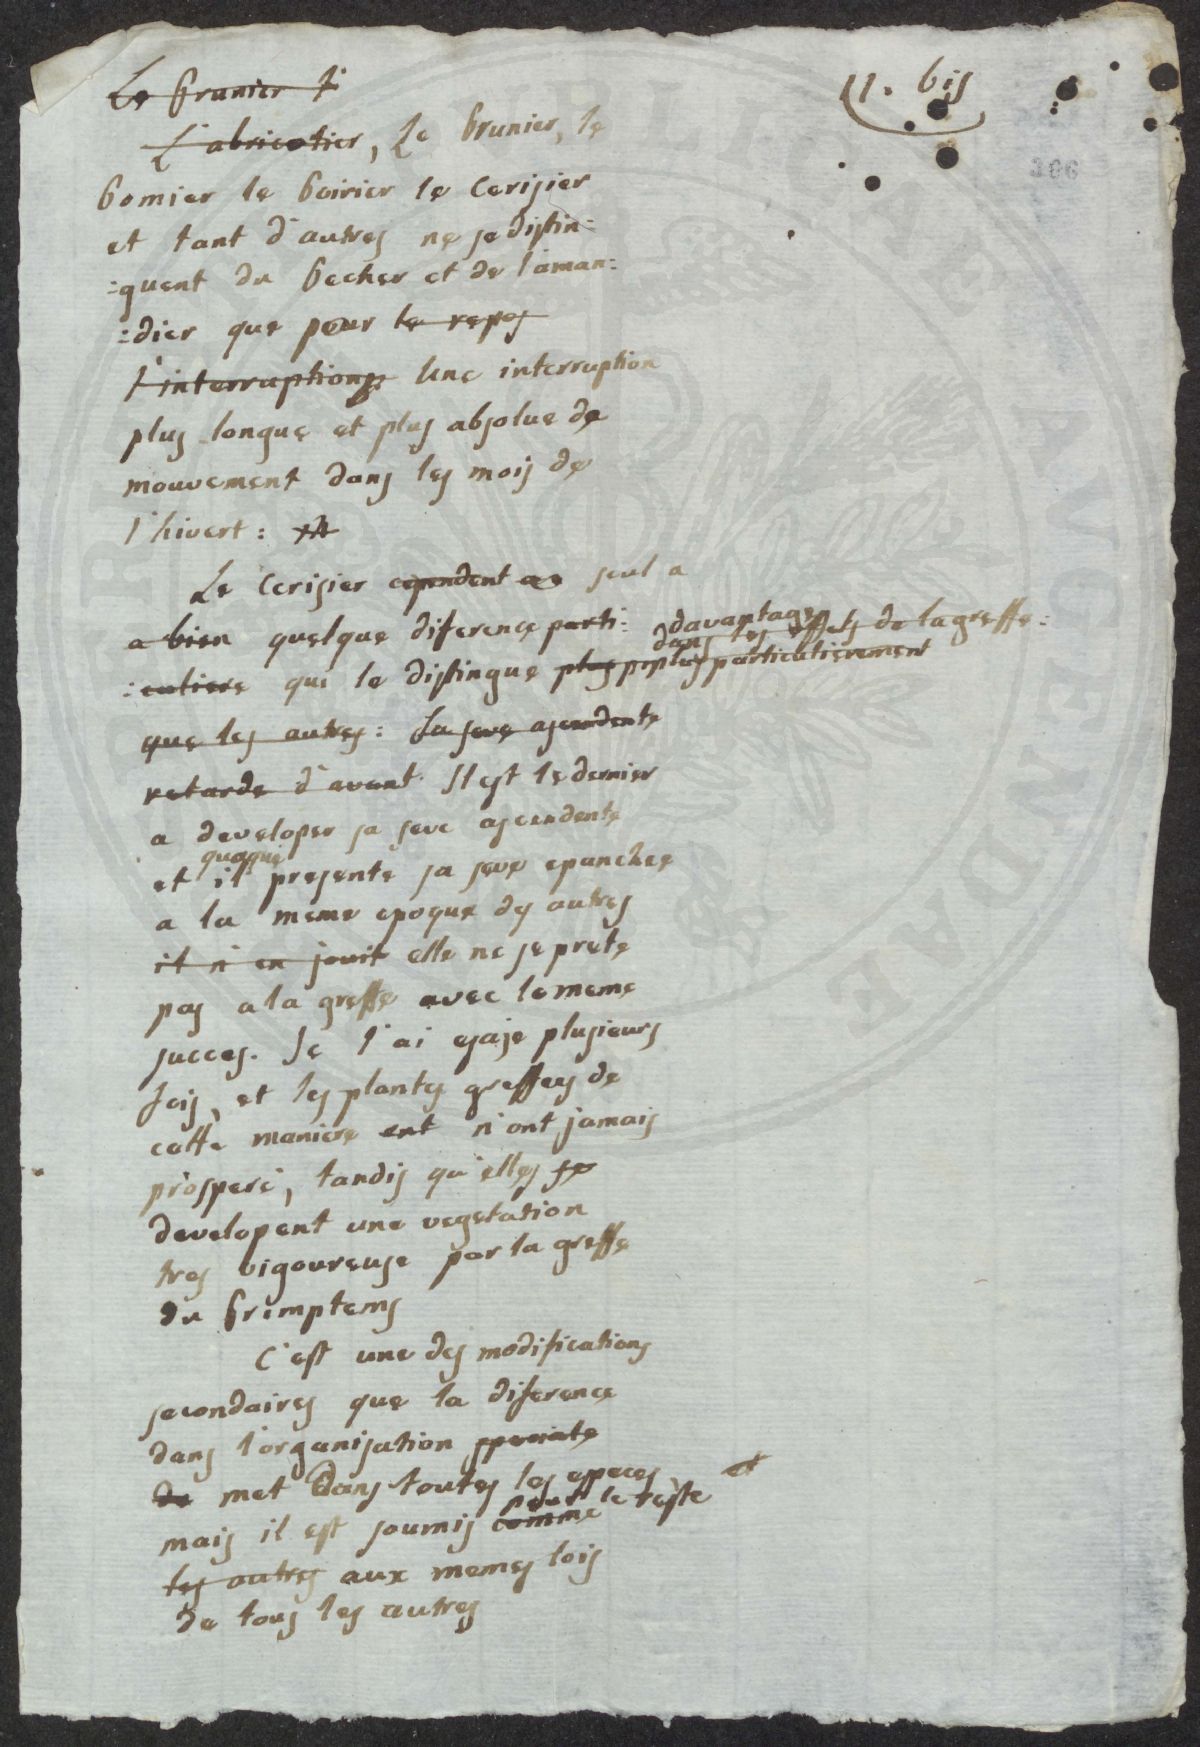 Le Prunier l'
11. bis
L'abricotier, Le Prunier, le
306
Pomier le Poirier le Cerisier
et tant d'autres ne se distin=
=guent du Pecher et de l'aman=
=dier que pour le repos
l'interruption Une interruption
plus longue et plus absolue de
mouvement dans les mois de
l'hivert:
Le Cerisier cependent seul a
a bien quelque diference parti=
davantage
dans les effets de la greffe:
=culiere qui le distingue plus plus particulierement
que les autres: La seve ascendente
retarde d'avant Il est le dernier
a developer sa seve ascendente
quoque
et il presente sa seve epanchee
a la meme epoque des autres
il n'en jouit elle ne se prete
pas a la greffe avec le meme
succes. Je l'ai esaje plusieurs
fois, et les plantes greffees de
cette maniere ont n'ont jamais
prosperé, tandis qu'elles se
developent une vegetation
tres vigoureuse par la greffe
du Primptems
C'est une des modifications
secondaires que la diference
dans l'organisation speciale
de met Dans toutes les especes et
pour le reste
mais il est soumis comme
les autres aux memes lois
de tous les autres